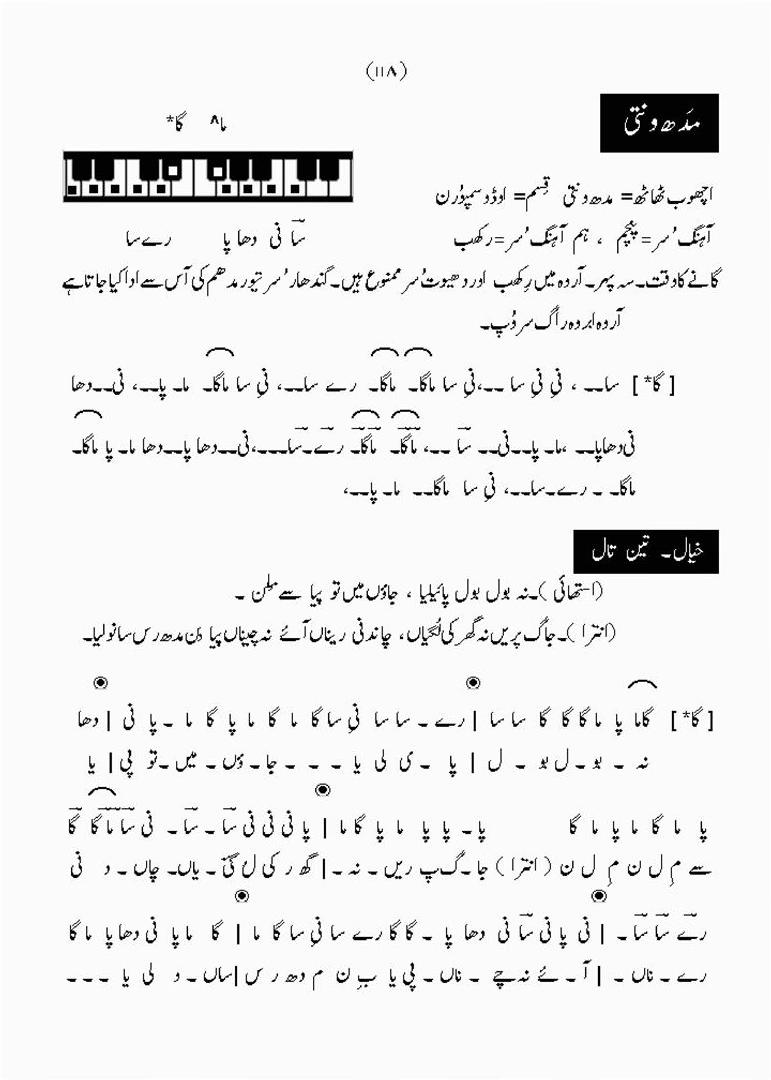 (۱۱۸)
مدھ ونتی
ما^ گا*
اچھوب ٹھاٹھ= مدھ ونتی قسم= اوڈو سمپوُرن
آہنگ سُر=پنچم ، ہم آہنگ سُر=رکھب
ساَ نی دھا پا رے سا
گانے کا وقت۔ سہ پہر۔ آردہ میں رِکھب اور دھیوت سُر ممنوع ہیں۔ گندھار سُر تیور مدھم کی آس سے ادا کیا جاتا ہے
آردہ ابردہ راگ سروُپ۔
[ گا* ] سا۔۔ ، نیِ نیِ سا ۔۔،نیِ سا ماگا۔ ماگا۔ رے سا۔۔، نیِ سا ماگا۔ ما۔ پا۔۔، نی۔۔دھا
نی دھاپا۔۔ ،ما۔ پا۔۔نی۔۔ سا ۔۔، ماگا۔ ماگا۔ رے۔سا۔۔۔،نی۔۔دھا پا۔۔دھا ما۔ پا ماگا۔
ماگا۔ ۔ رے۔سا۔۔، نیِ سا ماگا۔۔ ما۔ پا۔۔،
خیال۔ تین تال
(استھائی)۔نہ بول بول پائیلیا ، جاؤں میں تو پیا سے مِلن ۔
(انترا)۔جاگ پریں نہ گھر کی لُگیاں، چاندنی ریناں آئے نہ چیناں پیا بِن مدھ رس سانولیا۔
[ گا* ] گاما پا ماگا گا گا سا سا | رے ۔ سا سا نیِ سا گا ما گا ما پا گا ما ۔ پا نی | دھا
نہ ۔ بو ۔ل بو ۔ ل | پا ۔ ی لی یا ۔ ۔ ۔ جا ۔ ؤں ۔ میں ۔تو پی | یا
پا ما گا ما پا ما گا پا۔ پا پا ما پا گا ما | پا نی نی نی سا ۔ سا ۔ نی سا ماگا گا
سے مِ ل ن مِ ل ن (انترا) جا ۔گ پ ریں ۔ نہ ۔ | گھ ر کی ل گی ۔ یاں۔ چاں ۔ د نی
رے سا سا ۔ | نی پا نی سا نی دھا پا ۔ گا گا رے سا نیِ سا گا ما | گا ما پا نی دھا پا ما گا
رے ۔ ناں ۔ | آ ۔ ئے نہ چے ۔ ناں ۔ پی یا بِ ن م دھ ر س | ساں ۔ و لی یا ۔ ۔ ۔